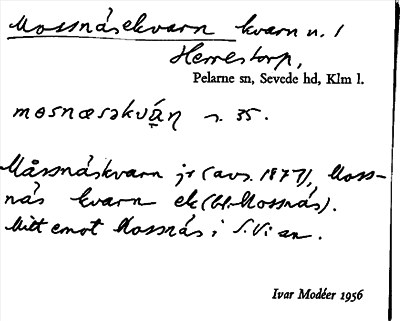 Mossnäsekvarn kvarn u. 1
Herrestorp,
Pelarne sn, Sevede hd, Klm l.
mosnæsəkvaṇ s. 35.
Måssnäskvarn jr (avs. 1877), Moss-
näs kvarn ek (bl. Mossnäs).
Mitt emot Mossnäs i S. Vi sn.
Ivar Modéer 1956